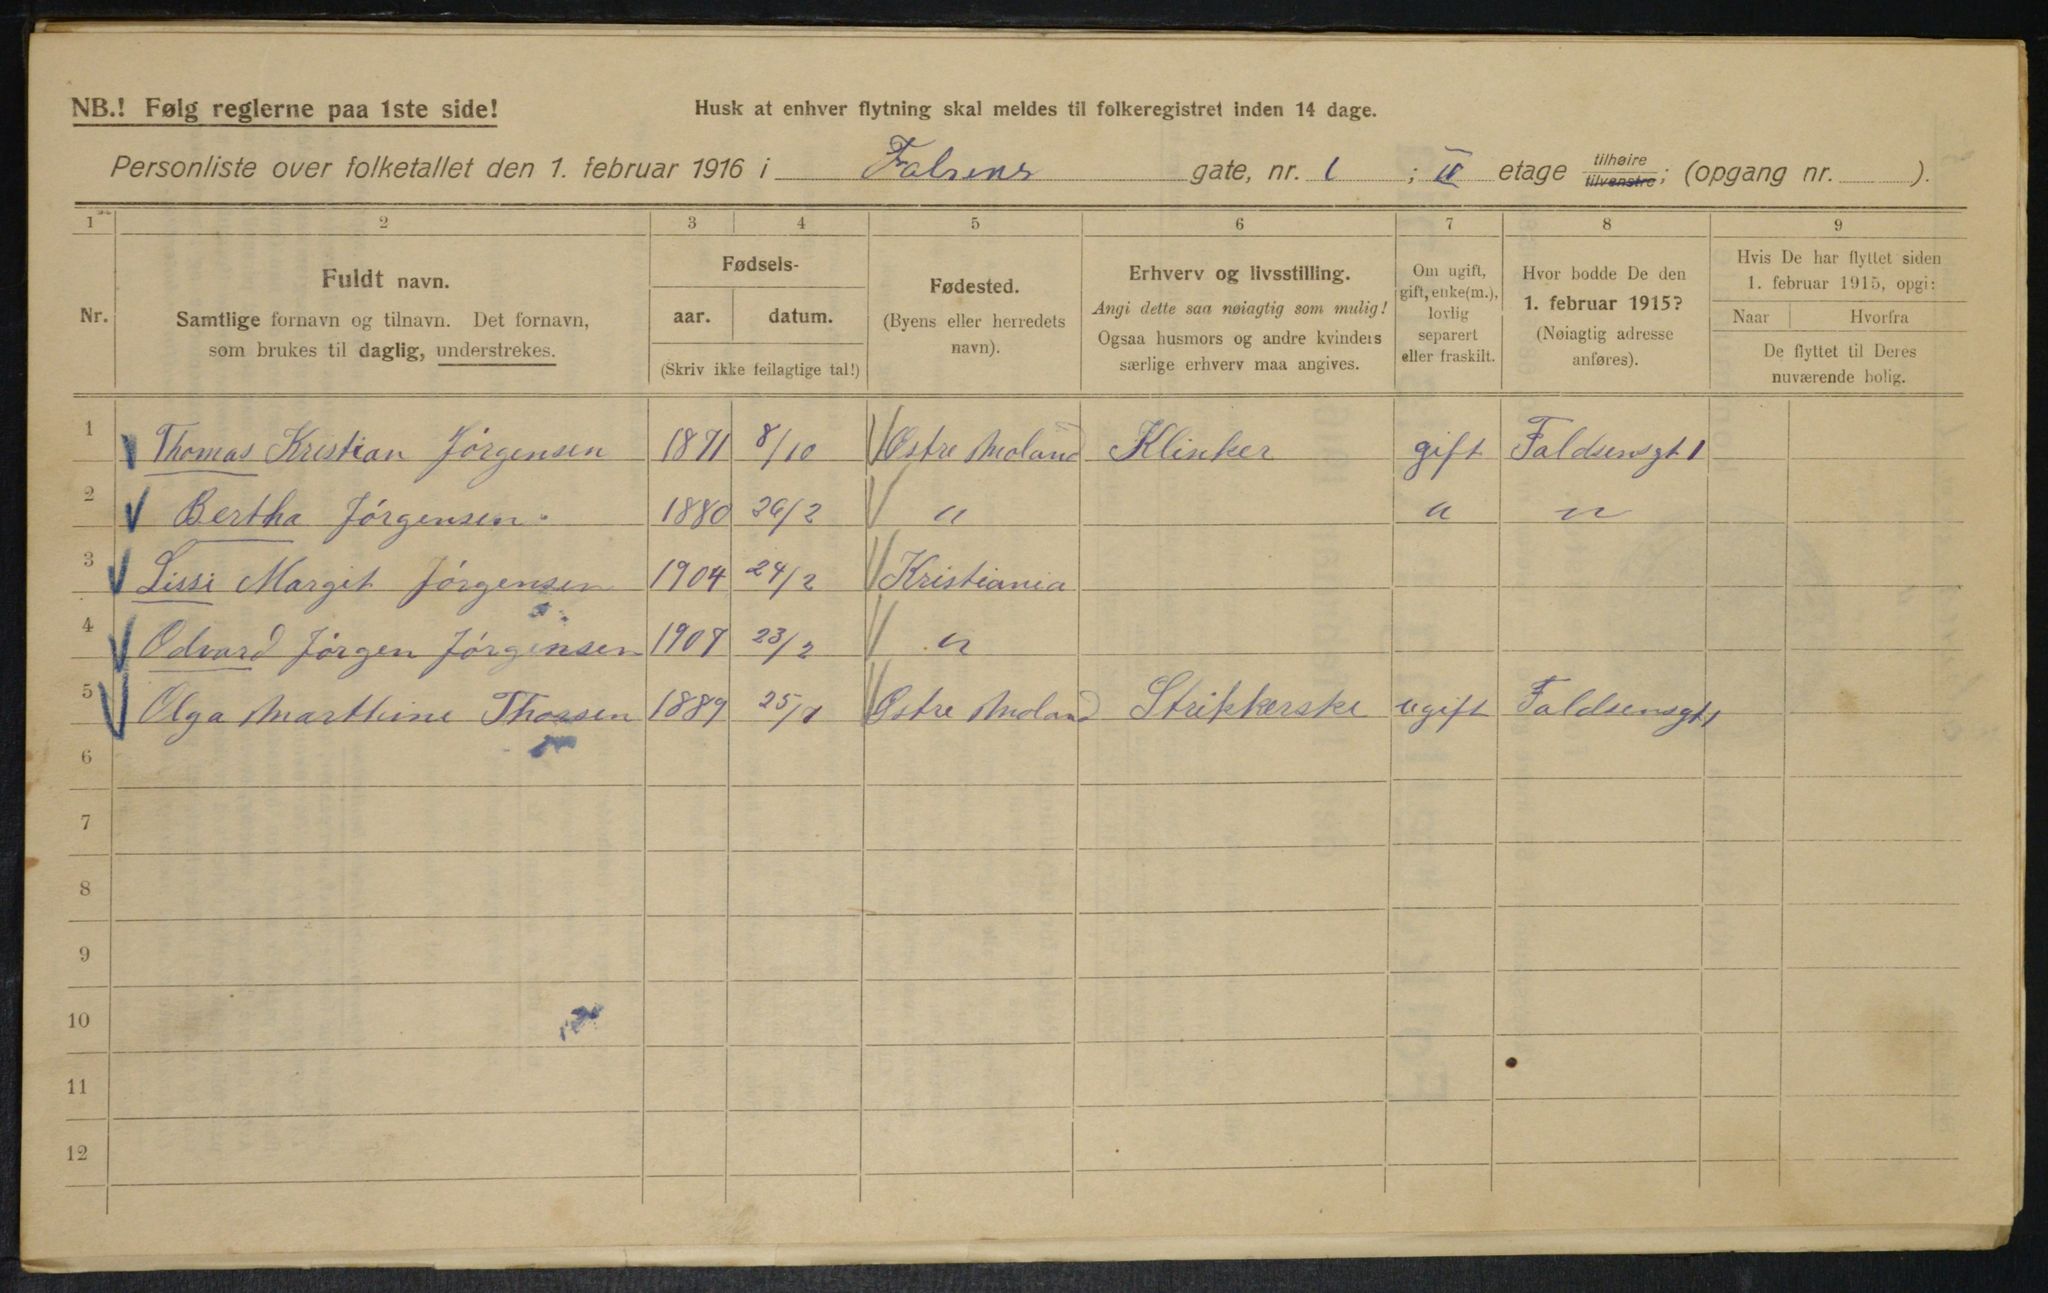 NB.! Følg reglerne paa 1ste side!
Husk at enhver flytning skal meldes til folkeregistret inden 14 dage.
Personliste over folketallet den 1. februar 1916 i Falsens gate, nr. 1 ; II etage tilhøire tilvenstre; (opgang nr. ).
1 2 3 4 5 6 7 8 9
Nr.
Fuldt navn.
Samtlige fornavn og tilnavn. Det fornavn,
som brukes til daglig, understrekes.
Fødsels-
aar. datum.
(Skriv ikke feilagtige tal!)
Fødested.
(Byens eller herredets
navn).
Erhverv og livsstilling.
Angi dette saa nøiagtig som mulig!
Ogsaa husmors og andre kvinders
særlige erhverv maa angives.
Om ugift,
gift, enke(m.),
lovlig
separert
eller fraskilt.
Hvor bodde De den
1. februar 1915?
(Nøiagtig adresse
anføres).
Hvis De har flyttet siden
1. februar 1915, opgi:
Naar Hvorfra
De flyttet til Deres
nuværende bolig.
1 Thomas Kristian Jørgensen 1871 8/10 Østre Moland Klinker gift Faldsensgt 1
2 Bertha Jørgensen 1880 26/2 " " "
3 Lissi Margit Jørgensen 1904 24/2 Kristiania
4 Odvard Jørgen Jørgensen 1907 23/2 "
5 Olga Marthine Thorsen 1889 25/7 Østre Moland Strikkerske ugift Faldsensgt 1
6
7
8
9
10
11
12